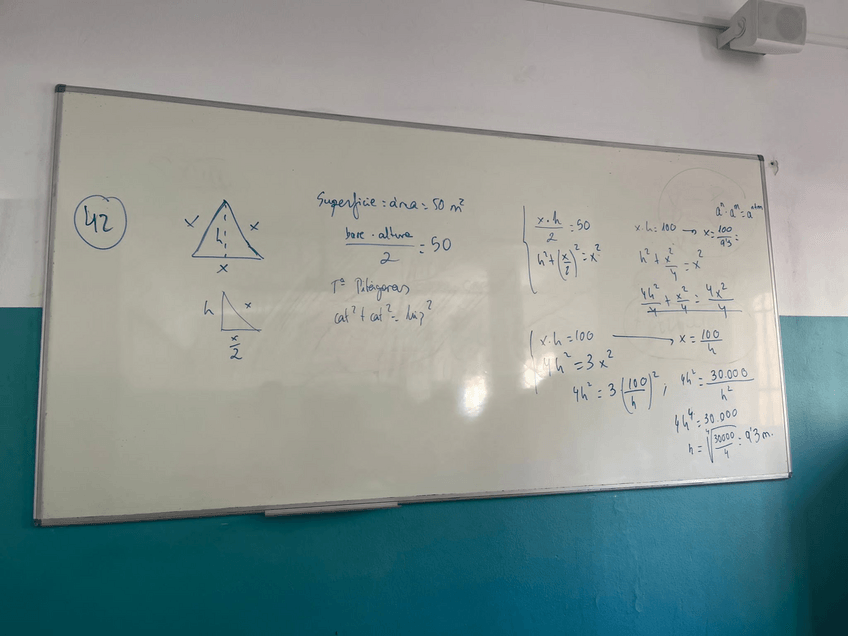 42
x x
h
x
h x
x/2
Superficie = área = 50 m²
base · altura / 2 = 50
Tª Pitágoras
cat² + cat² = hip²
x·h/2 = 50
h² + (x/2)² = x²
aⁿ · aᵐ = aⁿ⁺ᵐ
x·h = 100 → x = 100/9'3 =
h² + x²/4 = x²
4h²/4 + x²/4 = 4x²/4
x·h = 100 → x = 100/h
4h² = 3x²
4h² = 3(100/h)² ; 4h² = 30.000/h²
4h⁴ = 30.000
h = ⁴√(30000/4) = 9'3 m.